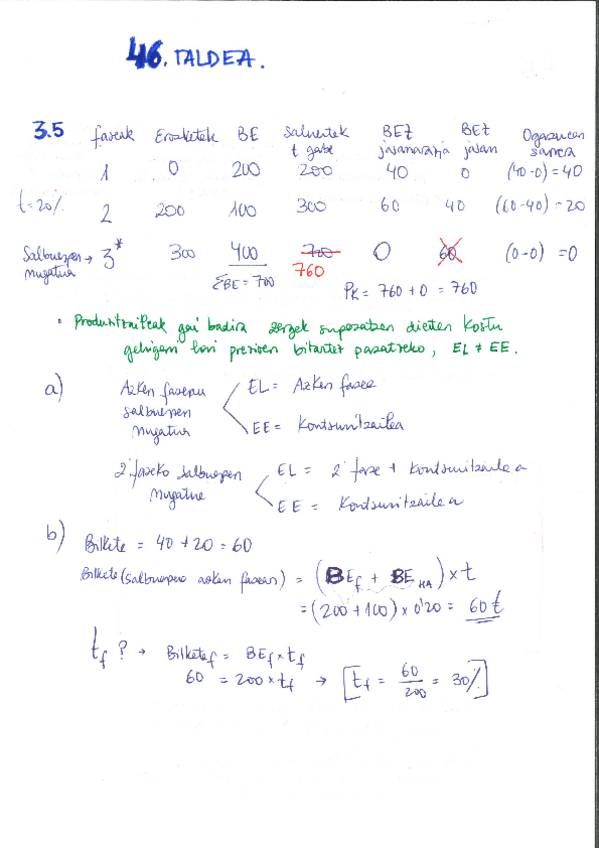 46. TALDEA.
3.5 faseak Erosketak BE Salmentak t gabe BEZ jasanarazia BEZ jasan Ogasunean sarrera
1 0 200 200 40 0 (40-0) = 40
t=20% 2 200 100 300 60 40 (60-40) = 20
Salbuespen mugatua → 3* 300 400 700 0 60 (0-0) = 0
ΣBE = 700 760 PK = 760 + 0 = 760
• Produktzaileak gai badira zergek suposatzen dieten kostu
gehigarri hori prezioen bitartez pasatzeko, EL ≠ EE.
a) Azken faseku salbuespen mugatua
EL = Azken fasea
EE = Kontsumitzailea
2. faseko salbuespen mugatua
EL = 2. fase + kontsumitzailea
EE = Kontsumitzailea
b) Bilketa = 40 + 20 = 60
Bilketa (salbuespena azken fasean) = (BEf + BE HA) x t
= (200 + 100) x 0'20 = 60 €
tf ? → Bilketaf = BEf x tf
60 = 200 x tf → [tf = 60/200 = 30%]